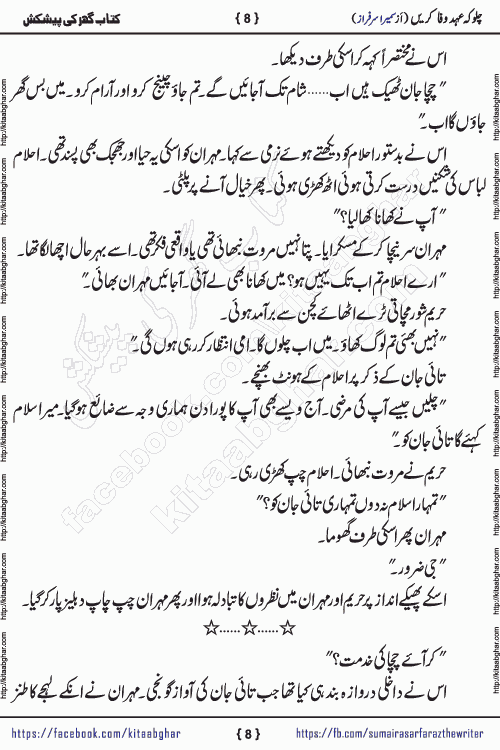 چلو کہ عہدِ وفا کریں (از سمیرا سرفراز) { 8 } کتاب گھر کی پیشکش
اس نے مختصراً کہہ کر اسکی طرف دیکھا۔
"چچا جان ٹھیک ہیں اب......شام تک آجائیں گے۔ تم جاؤ چینج کرو اور آرام کرو۔ میں بس گھر
جاؤں گا اب۔"
اس نے بدستور احلام کو دیکھتے ہوئے نرمی سے کہا۔ مہران کو اسکی یہ حیا اور جھجک بھی پسند تھی۔ احلام
لباس کی شکنیں درست کرتی ہوئی اٹھ کھڑی ہوئی۔ پھر خیال آنے پر پلٹی۔
"آپ نے کھانا کھالیا؟"
مہران سر نیچا کر کے مسکرایا۔ پتا نہیں مروت نبھائی تھی یا واقعی فکر تھی۔ اسے بہر حال اچھا لگا تھا۔
"ارے احلام تم اب تک یہیں ہو؟ میں کھانا بھی لے آئی۔ آجائیں مہران بھائی۔"
حریم شور مچاتی ٹرے اٹھائے کچن سے برآمد ہوئی۔
"نہیں بھئی تم لوگ کھاؤ۔ میں اب چلوں گا۔ امی انتظار کر رہی ہوں گی۔"
تائی جان کے ذکر پر احلام کے ہونٹ بھنچے۔
"چلیں جیسے آپ کی مرضی۔ آج ویسے بھی آپ کا پورا دن ہماری وجہ سے ضائع ہو گیا۔ میرا سلام
کہیئے گا تائی جان کو۔"
حریم نے مروت نبھائی۔ احلام چپ کھڑی رہی۔
"تمہارا سلام نہ دوں تمہاری تائی جان کو؟"
مہران پھر اسکی طرف گھوما۔
"جی ضرور۔"
اسکے پھیکے انداز پر حریم اور مہران میں نظروں کا تبادلہ ہوا اور پھر مہران چپ چاپ دہلیز پار کر گیا۔
☆......☆......☆
"کر آئے چچا کی خدمت؟"
اس نے داخلی دروازہ بند ہی کیا تھا جب تائی جان کی آواز گونجی۔ مہران نے انکے لہجے کا طنز
https://facebook.com/kitaabghar { 8 } https://fb.com/sumairasarfarazthewriter
http://kitaabghar.com
http://kitaabghar.com
کتاب گھر کی پیشکش
facebook.com/kitaabghar
kitaabghar.com